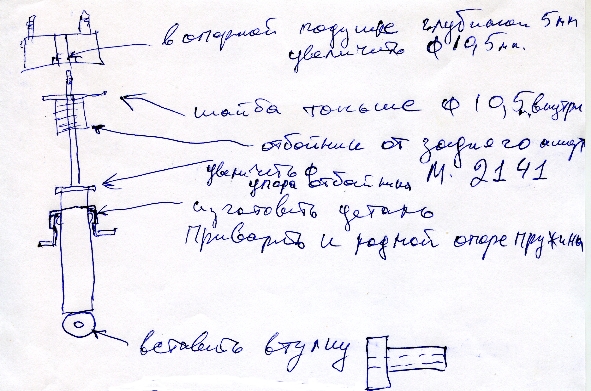 в опорной подушке глубиной 5мм
увеличить Ф 10,5мм.
шайба тоньше Ф 10,5 внутри
отбойник от заднего аморт
М. 2141
увеличить Ф
упора отбойника
изготовить деталь
Приварить к родной опоре пружины
вставить втулку